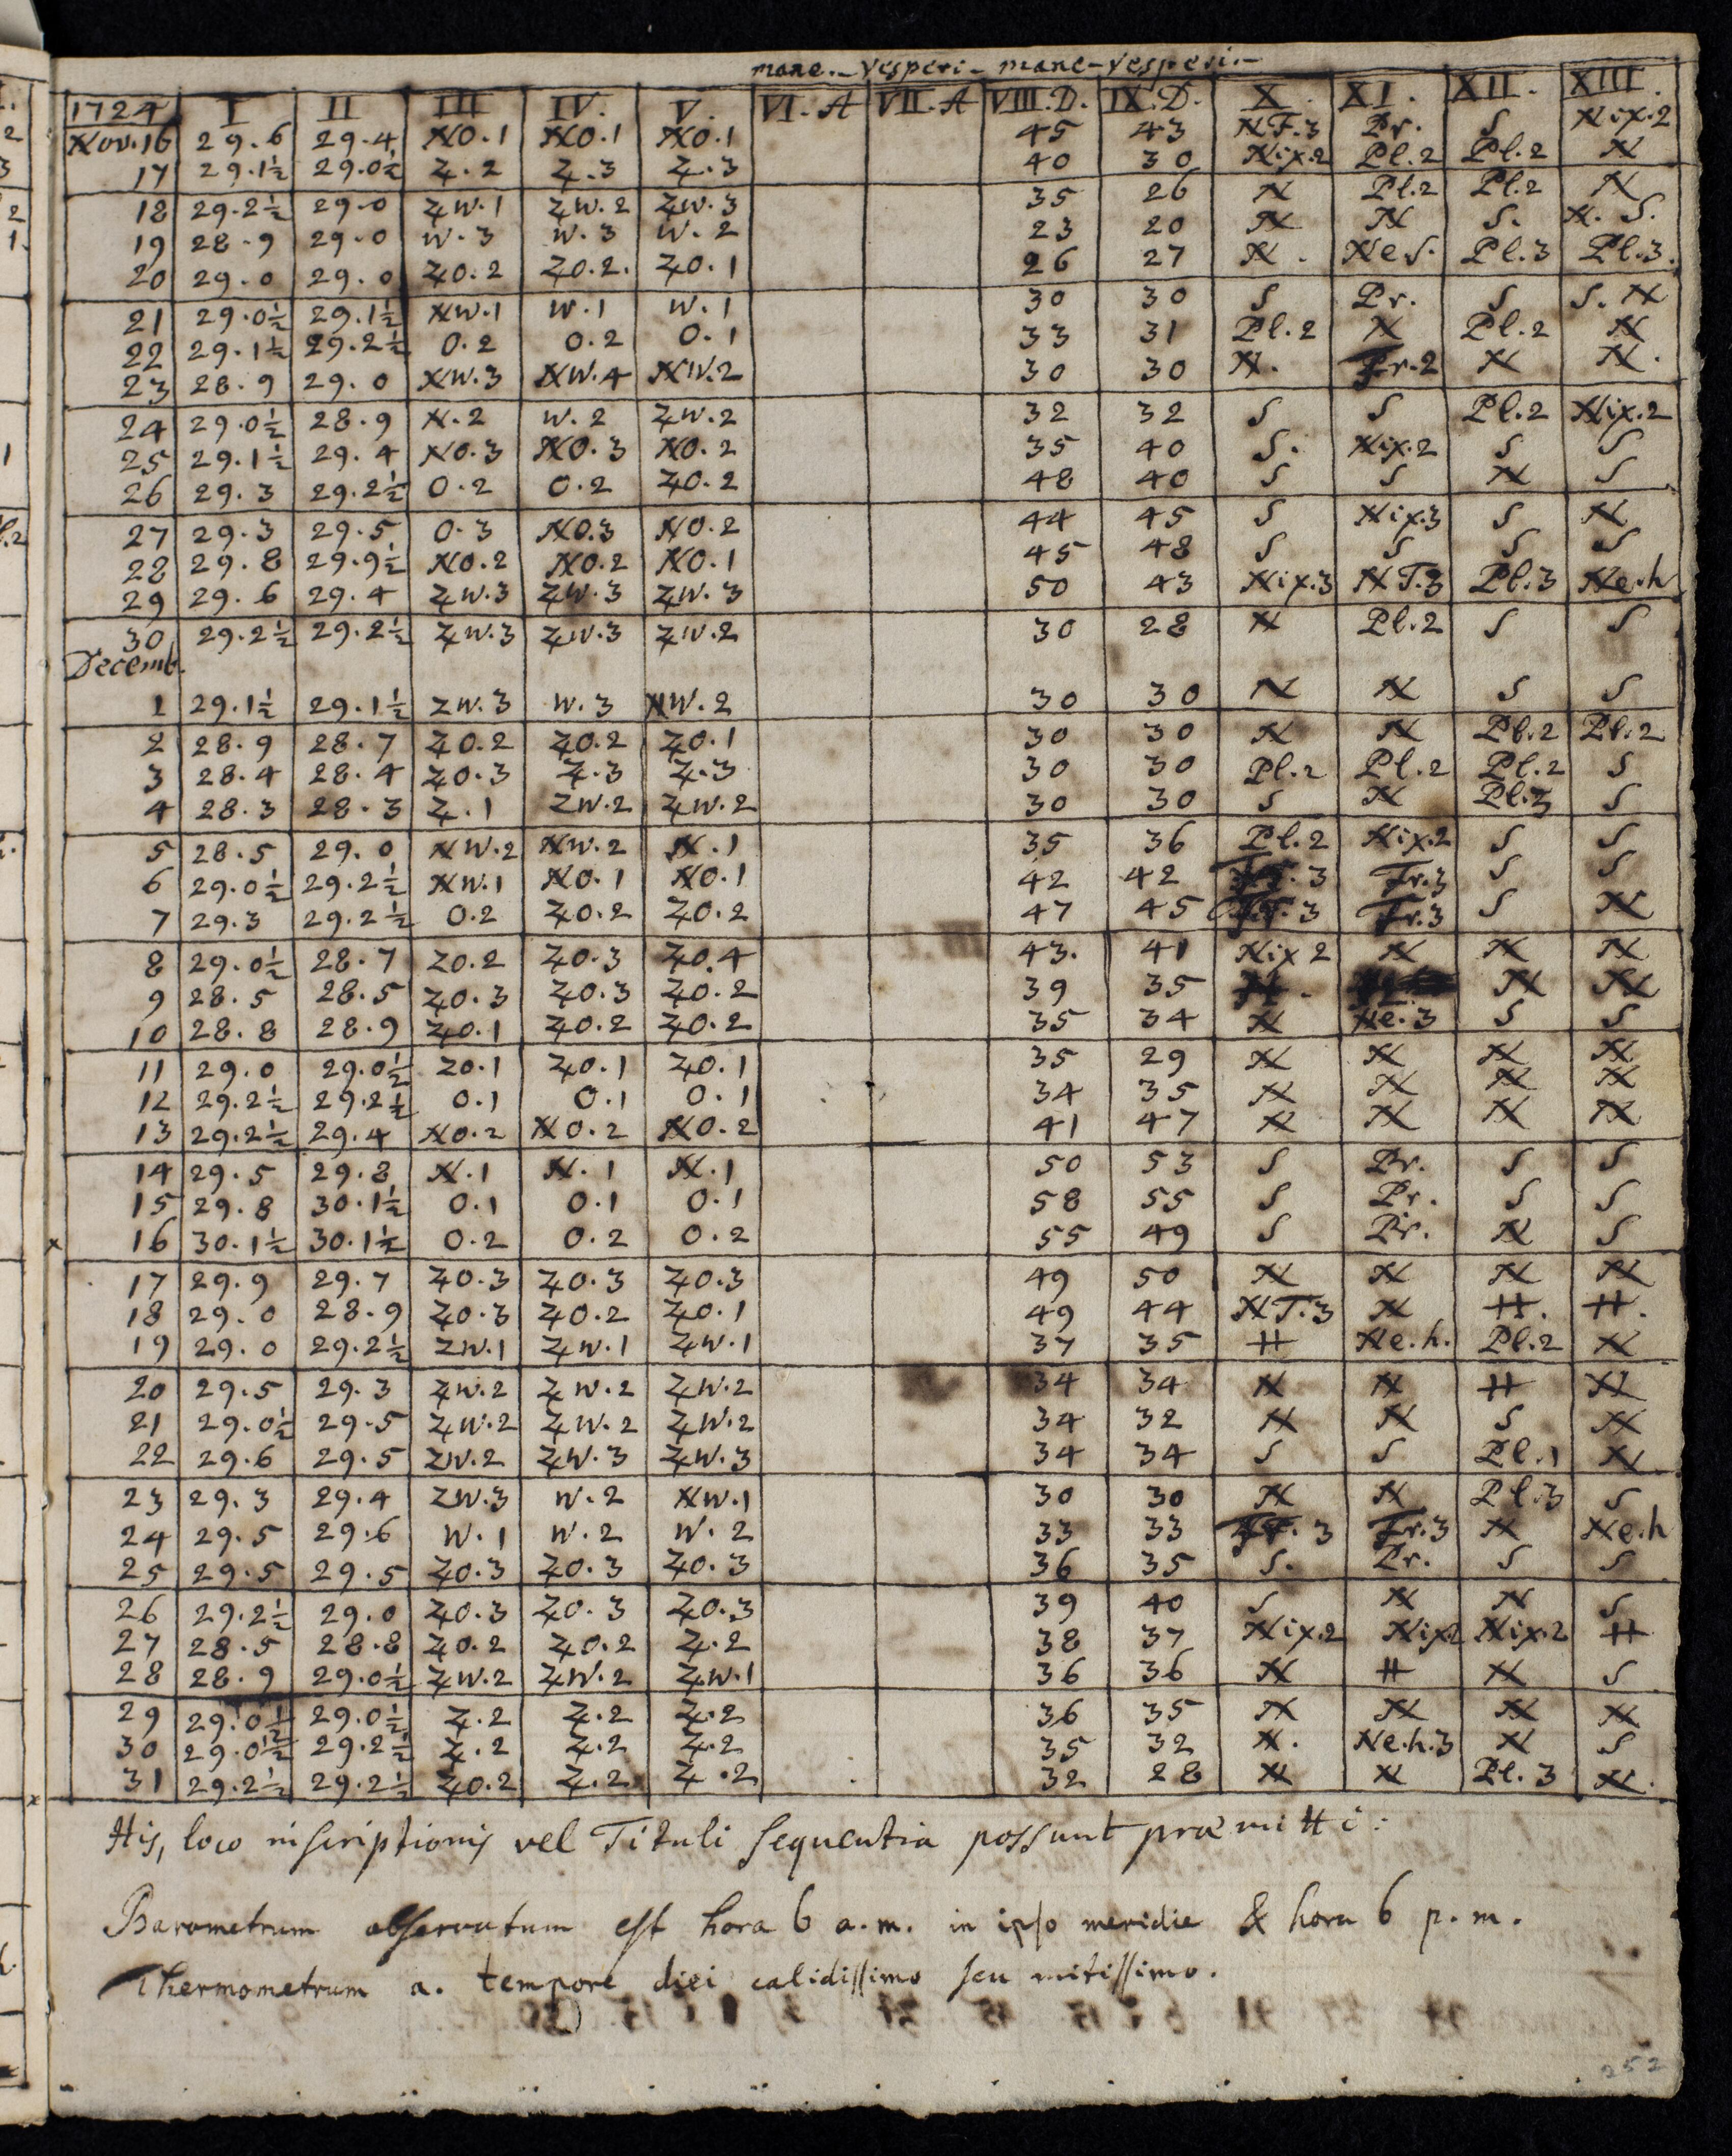 mane. Vesperi- mane-Vesperi.-
1724 I II III IV. V. VI. A VII. A VIII. D. IX. D. X. XI. XII. XIII.
Nov. 16 29.6 29.4 NO.1 NO.1 NO.1 45 43 NT.3 Pr. S Nix.2
17 29.1½ 29.0½ Z.2 Z.3 Z.3 40 30 Nix.2 Pl.2 Pl.2 N
18 29.2½ 29.0 ZW.1 ZW.2 ZW.3 35 26 N Pl.2 Pl.2 N
19 28.9 29.0 W.3 W.3 W.2 23 20 N N S. N. S.
20 29.0 29.0 ZO.2 ZO.2. ZO.1 26 27 N. Ne S. Pl.3 Pl.3.
21 29.0½ 29.1½ NW.1 W.1 W.1 30 30 S Pr. S S. N
22 29.1½ 29.2½ O.2 O.2 O.1 33 31 Pl.2 N Pl.2 N
23 28.9 29.0 NW.3 NW.4 NW.2 30 30 N. Fr.2 N N.
24 29.0½ 28.9 N.2 W.2 ZW.2 32 32 S S Pl.2 Nix.2
25 29.1½ 29.4 NO.3 NO.3 NO.2 35 40 S. Nix.2 S S
26 29.3 29.2½ O.2 O.2 ZO.2 48 40 S S N S
27 29.3 29.5 O.3 NO.3 NO.2 44 45 S Nix.3 S N
28 29.8 29.9½ NO.2 NO.2 NO.1 45 48 S S S S
29 29.6 29.4 ZW.3 ZW.3 ZW.3 50 43 Nix.3 NT.3 Pl.3 Ne.h
30 29.2½ 29.2½ ZW.3 ZW.3 ZW.2 30 28 N Pl.2 S S
Decemb.
1 29.1½ 29.1½ ZW.3 W.3 NW.2 30 30 N N S S
2 28.9 28.7 ZO.2 ZO.2 ZO.1 30 30 N N Pl.2 Pl.2
3 28.4 28.4 ZO.3 Z.3 Z.3 30 30 Pl.2 Pl.2 Pl.2 S
4 28.3 28.3 Z.1 ZW.2 ZW.2 30 30 S N Pl.3 S
5 28.5 29.0 NW.2 NW.2 N.1 35 36 Pl.2 Nix.2 S S
6 29.0½ 29.2½ NW.1 NO.1 NO.1 42 42 3 Fr.3 S S
7 29.3 29.2½ O.2 ZO.2 ZO.2 47 45 3 Fr.3 S N
8 29.0½ 28.7 ZO.2 ZO.3 ZO.4 43. 41 Nix 2 N N N
9 28.5 28.5 ZO.3 ZO.3 ZO.2 39 35 N N
10 28.8 28.9 ZO.1 ZO.2 ZO.2 35 34 N Ne.3 S S
11 29.0 29.0½ ZO.1 ZO.1 ZO.1 35 29 N N N N
12 29.2½ 29.2½ O.1 O.1 O.1 34 35 N N N N
13 29.2½ 29.4 NO.2 NO.2 NO.2 41 47 N N N N
14 29.5 29.8 N.1 N.1 N.1 50 53 S Pr. S S
15 29.8 30.1½ O.1 O.1 O.1 58 55 S Pr. S S
x 16 30.1½ 30.1½ O.2 O.2 O.2 55 49 S Pr. N S
17 29.9 29.7 ZO.3 ZO.3 ZO.3 49 50 N N N N
18 29.0 28.9 ZO.3 ZO.2 ZO.1 49 44 NT.3 N H. H.
19 29.0 29.2½ ZW.1 ZW.1 ZW.1 37 35 H Ne.h. Pl.2 N
20 29.5 29.3 ZW.2 ZW.2 ZW.2 34 34 N N H N
21 29.0½ 29.5 ZW.2 ZW.2 ZW.2 34 32 N N S N
22 29.6 29.5 ZW.2 ZW.3 ZW.3 34 34 S S Pl.1 N
23 29.3 29.4 ZW.3 W.2 NW.1 30 30 N N Pl.3 S
24 29.5 29.6 W.1 W.2 W.2 33 33 3 Fr.3 N Ne.h
25 29.5 29.5 ZO.3 ZO.3 ZO.3 36 35 S. Pr. S S
26 29.2½ 29.0 ZO.3 ZO.3 ZO.3 39 40 S N N S
27 28.5 28.8 ZO.2 ZO.2 Z.2 38 37 Nix.2 Nix.2 Nix.2 H
28 28.9 29.0½ ZW.2 ZW.2 ZW.1 36 36 N H N S
29 29.0½ 29.0½ Z.2 Z.2 Z.2 36 35 N N N N
30 29.0½ 29.2½ Z.2 Z.2 Z.2 35 32 N. Ne.h.3 N S
x 31 29.2½ 29.2½ ZO.2 Z.2 Z.2 32 28 N N Pl.3 N.
His, loco inscriptionis vel Tituli sequentia possunt præmitti:
Barometrum observatum est hora 6 a.m. in ipso meridie & hora 6 p.m.
Thermometrum a. tempore diei calidissimo seu mitissimo.
252